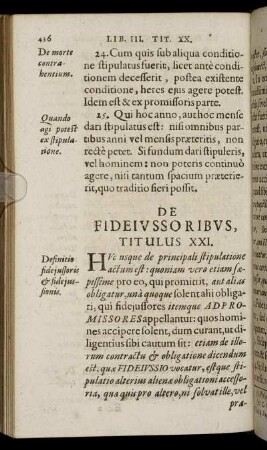 436 LIB. III. TIT. XX.
De morte
contra-
hentium.
24. Cum quis sub aliqua conditio-
ne stipulatus fuerit, licet antè condi-
tionem decesserit, postea existente
conditione, heres ejus agere potest.
Idem est & ex promissoris parte.
Quando
agi potest
ex stipula-
tione.
25. Qui hoc anno, aut hoc mense
dari stipulatus est: nisi omnibus par-
tibus anni vel mensis præteritis, non
rectè petet. Si fundum dari stipuleris,
vel hominem: non poteris continuò
agere, nisi tantum spacium præterie-
rit, quo traditio fieri possit.
DE
FIDEIVSSORIBVS,
TITULUS XXI.
Definitio
fidejussoris
& fidejus-
sionis.
HVc usque de principali stipulatione
actum est: quoniam vero etiam sæ-
pissime pro eo, qui promittit, aut aliàs
obligatur, unà quoque solent alii obliga-
ri, qui fidejussores itemque ADPRO-
MISSORES appellantur: quos homi-
nes accipere solent, dum curant, ut di-
ligentius sibi cautum sit: etiam de illo-
rum contractu & obligatione dicendum
est. quæ FIDEIVSSIO vocatur, estque sti-
pulatio alterius alienæ obligationi accesso-
ria, qua quis pro altero, ni solvat ille, vel
præ-